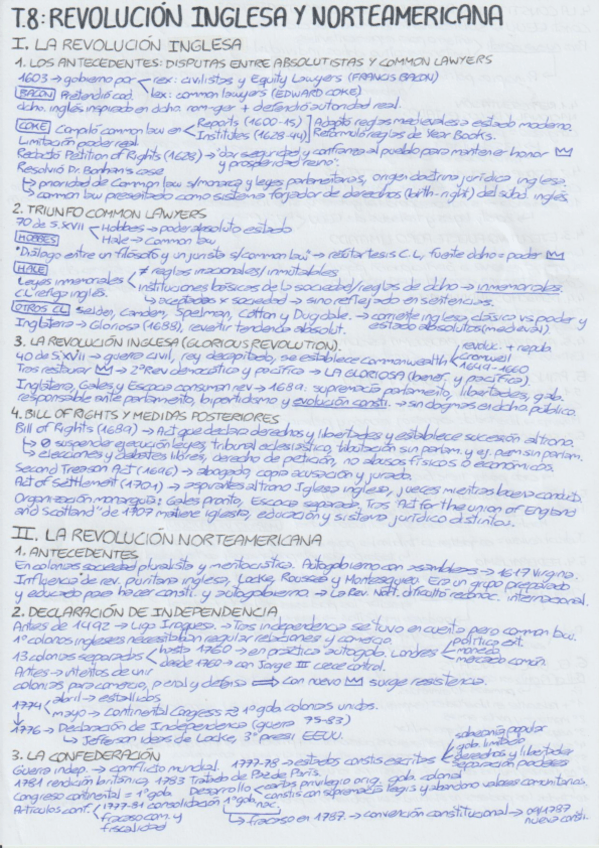 T.8: REVOLUCIÓN INGLESA Y NORTEAMERICANA
I. LA REVOLUCIÓN INGLESA
1. LOS ANTECEDENTES: DISPUTAS ENTRE ABSOLUTISTAS Y COMMON LAWYERS
1603 → gobierno por rex: civilistas y Equity Lawyers (FRANCIS BACON)
lex: common lawyers (EDWARD COKE)
BACON Pretendió cod.
dcho. inglés inspirado en dcho. rom-ger + defendió autoridad real.
COKE Compiló common law en Reports (1600-15) Adaptó reglas medievales a estado moderno.
Institutes (1628-44) Reformuló reglas de Year Books.
Limitación poder real
Redactó Petition of Rights (1628) → "dar seguridad y confianza al pueblo para mantener honor
y prosperidad reino".
Resolvió Dr. Bonham's case
↳ prioridad de Common law s/monarca y leyes parlamentarias, origen doctrina jurídica inglesa.
↳ common law presentado como sistema forjador de derechos (birth-right) del súbd. inglés.
2. TRIUNFO COMMON LAWYERS
70 de S.XVII Hobbes → poder absoluto estado
Hale → Common law
HOBBES
"Diálogo entre un filósofo y un jurista s/common law" → refutar tesis C.L, fuente dcho = poder
HALE
Leyes inmemoriales ≠ reglas irracionales/inmutables
instituciones básicas de la sociedad/reglas de dcho → inmemoriales.
CL reflejo inglés.
↳ aceptadas x sociedad → sino reflejado en sentencias.
OTROS CL Selden, Camden, Spelman, Cotton y Dugdale. → corriente inglesa clásica vs poder y
estado absolutos (medieval).
Inglaterra → Gloriosa (1688), revertir tendencia absolut.
3. LA REVOLUCIÓN INGLESA (GLORIOUS REVOLUTION).
40 de S.XVII → guerra civil, rey decapitado, se establece commonwealth revoluc. + repub.
Cromwell
1649-1660
Tras restaurar → 2ª Rev democrática y pacífica → LA GLORIOSA (benef. y pacífica).
Inglaterra, Gales y Escocia consuman rev → 1689: supremacía parlamento, libertades, gob.
responsable ante parlamento, bipartidismo y evolución consti. → sin dogmas en dcho público.
4. BILL OF RIGHTS Y MEDIDAS POSTERIORES
Bill of Rights (1689) → Act que declara derechos y libertades y establece sucesión al trono.
↳ Ø suspender ejecución leyes, tribunal eclesiástico, tributación sin parlam. y ej. perm sin parlam.
↳ elecciones y debates libres, derecho de petición, no abusos físicos o económicos.
Second Treason Act (1696) → abogado, copia acusación y jurado.
Act of Settlement (1701) → aspirantes al trono Iglesia inglesa, jueces mientras buena conducta.
Organización monarquía: Gales pronto, Escocia separada, Tras "Act for the union of England
and Scotland" de 1707 mantiene iglesia, educación y sistema jurídico distintos.
II. LA REVOLUCIÓN NORTEAMERICANA
1. ANTECEDENTES
En colonias sociedad pluralista y meritocrática. Autogobierno con asambleas → 1617 Virginia.
Influencia de rev. puritana inglesa, Locke, Rousseau y Montesquieu. Era un grupo preparado
y educado para hacer consti. y autogobierno → La Rev. Nort. dificultó reconoc. internacional.
2. DECLARACIÓN DE INDEPENDENCIA
Antes de 1492 → Liga Iroquesa. → Tras independencia se tuvo en cuenta pero common law.
1º colonos ingleses necesitaban regular relaciones y comercio
13 colonias separadas hasta 1760 → en práctica autogob. Londres política ext.
moneda
mercado común
desde 1760 → con Jorge III crece control.
Antes → intentos de unir
colonias para comercio, penal y defensa ⟹ con nuevo surge resistencia.
1774 abril → estallidos
mayo → Continental Congress ≈ 1º gob colonias unidas.
1776 → Declaración de Independencia (guerra 75-83)
↳ Jefferson ideas de Locke, 3º presi EEUU.
3. LA CONFEDERACIÓN
Guerra indep. → conflicto mundial. 1777-78 → estados constis escritas soberanía popular
gob. limitado
derechos y libertades
separación poderes
1781 rendición británica 1783 Tratado de Paz de París.
Congreso continental = 1º gob. Desarrollo cartas privilegio orig. gob. colonial
constis con supremacía legis y abandono valores comunitarios.
Artículos conf. 1777-81 consolidación 1º gob nac.
fracaso com. y
fiscalidad
↳ fracaso en 1787. → convención constitucional → 1787
nueva consti.